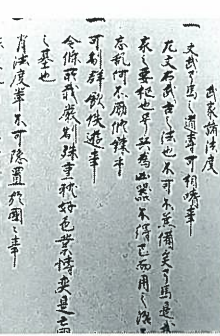 武家諸法度
一 文武弓馬之道専可相嗜事
左文右武古之法也不可不兼備矣弓馬是武
家之要枢也号兵為凶器不得已而用之治
忘乱何不励修錬乎
一 可制群飲佚遊事
令條所載厳制殊重耽好色業博奕是亡国
之基也
一 背法度輩不可隠置於国々事